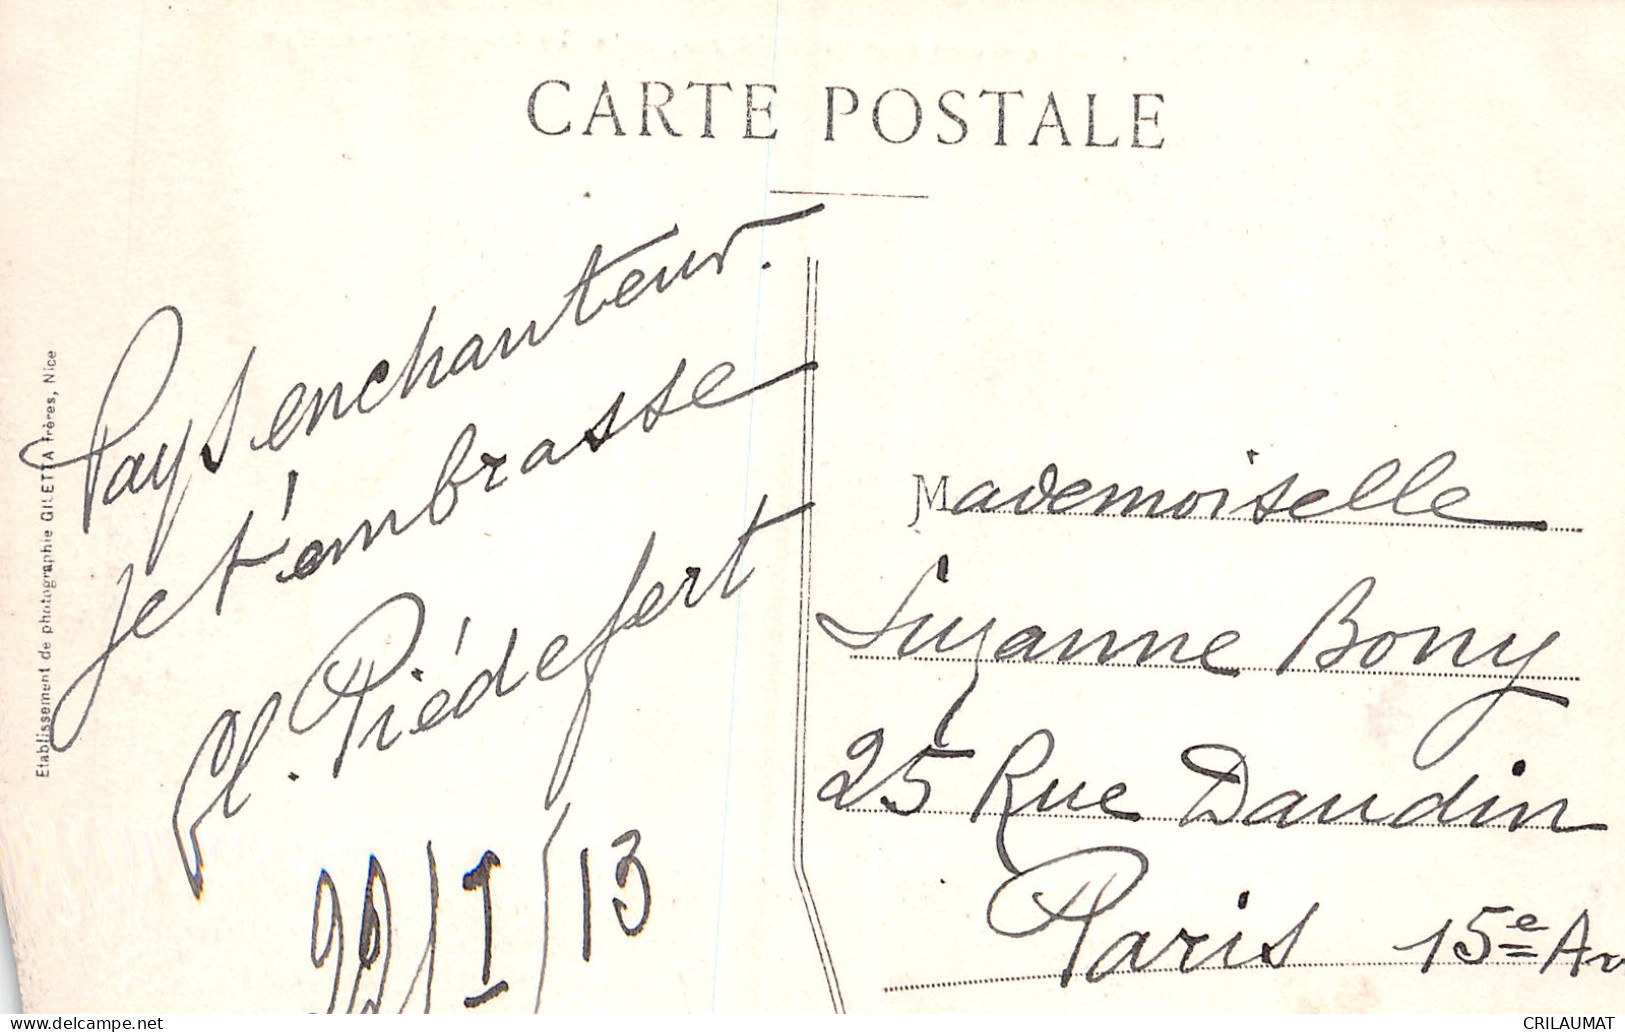 CARTE POSTALE
Pays enchanteur.
Je t'embrasse
Cl. Piédefert
22/I/13
Etablissement de photographie GILETTA frères, Nice
Mademoiselle
Suzanne Bony
25 Rue Daudin
Paris 15e Ar
delcampe.net
CRILAUMAT